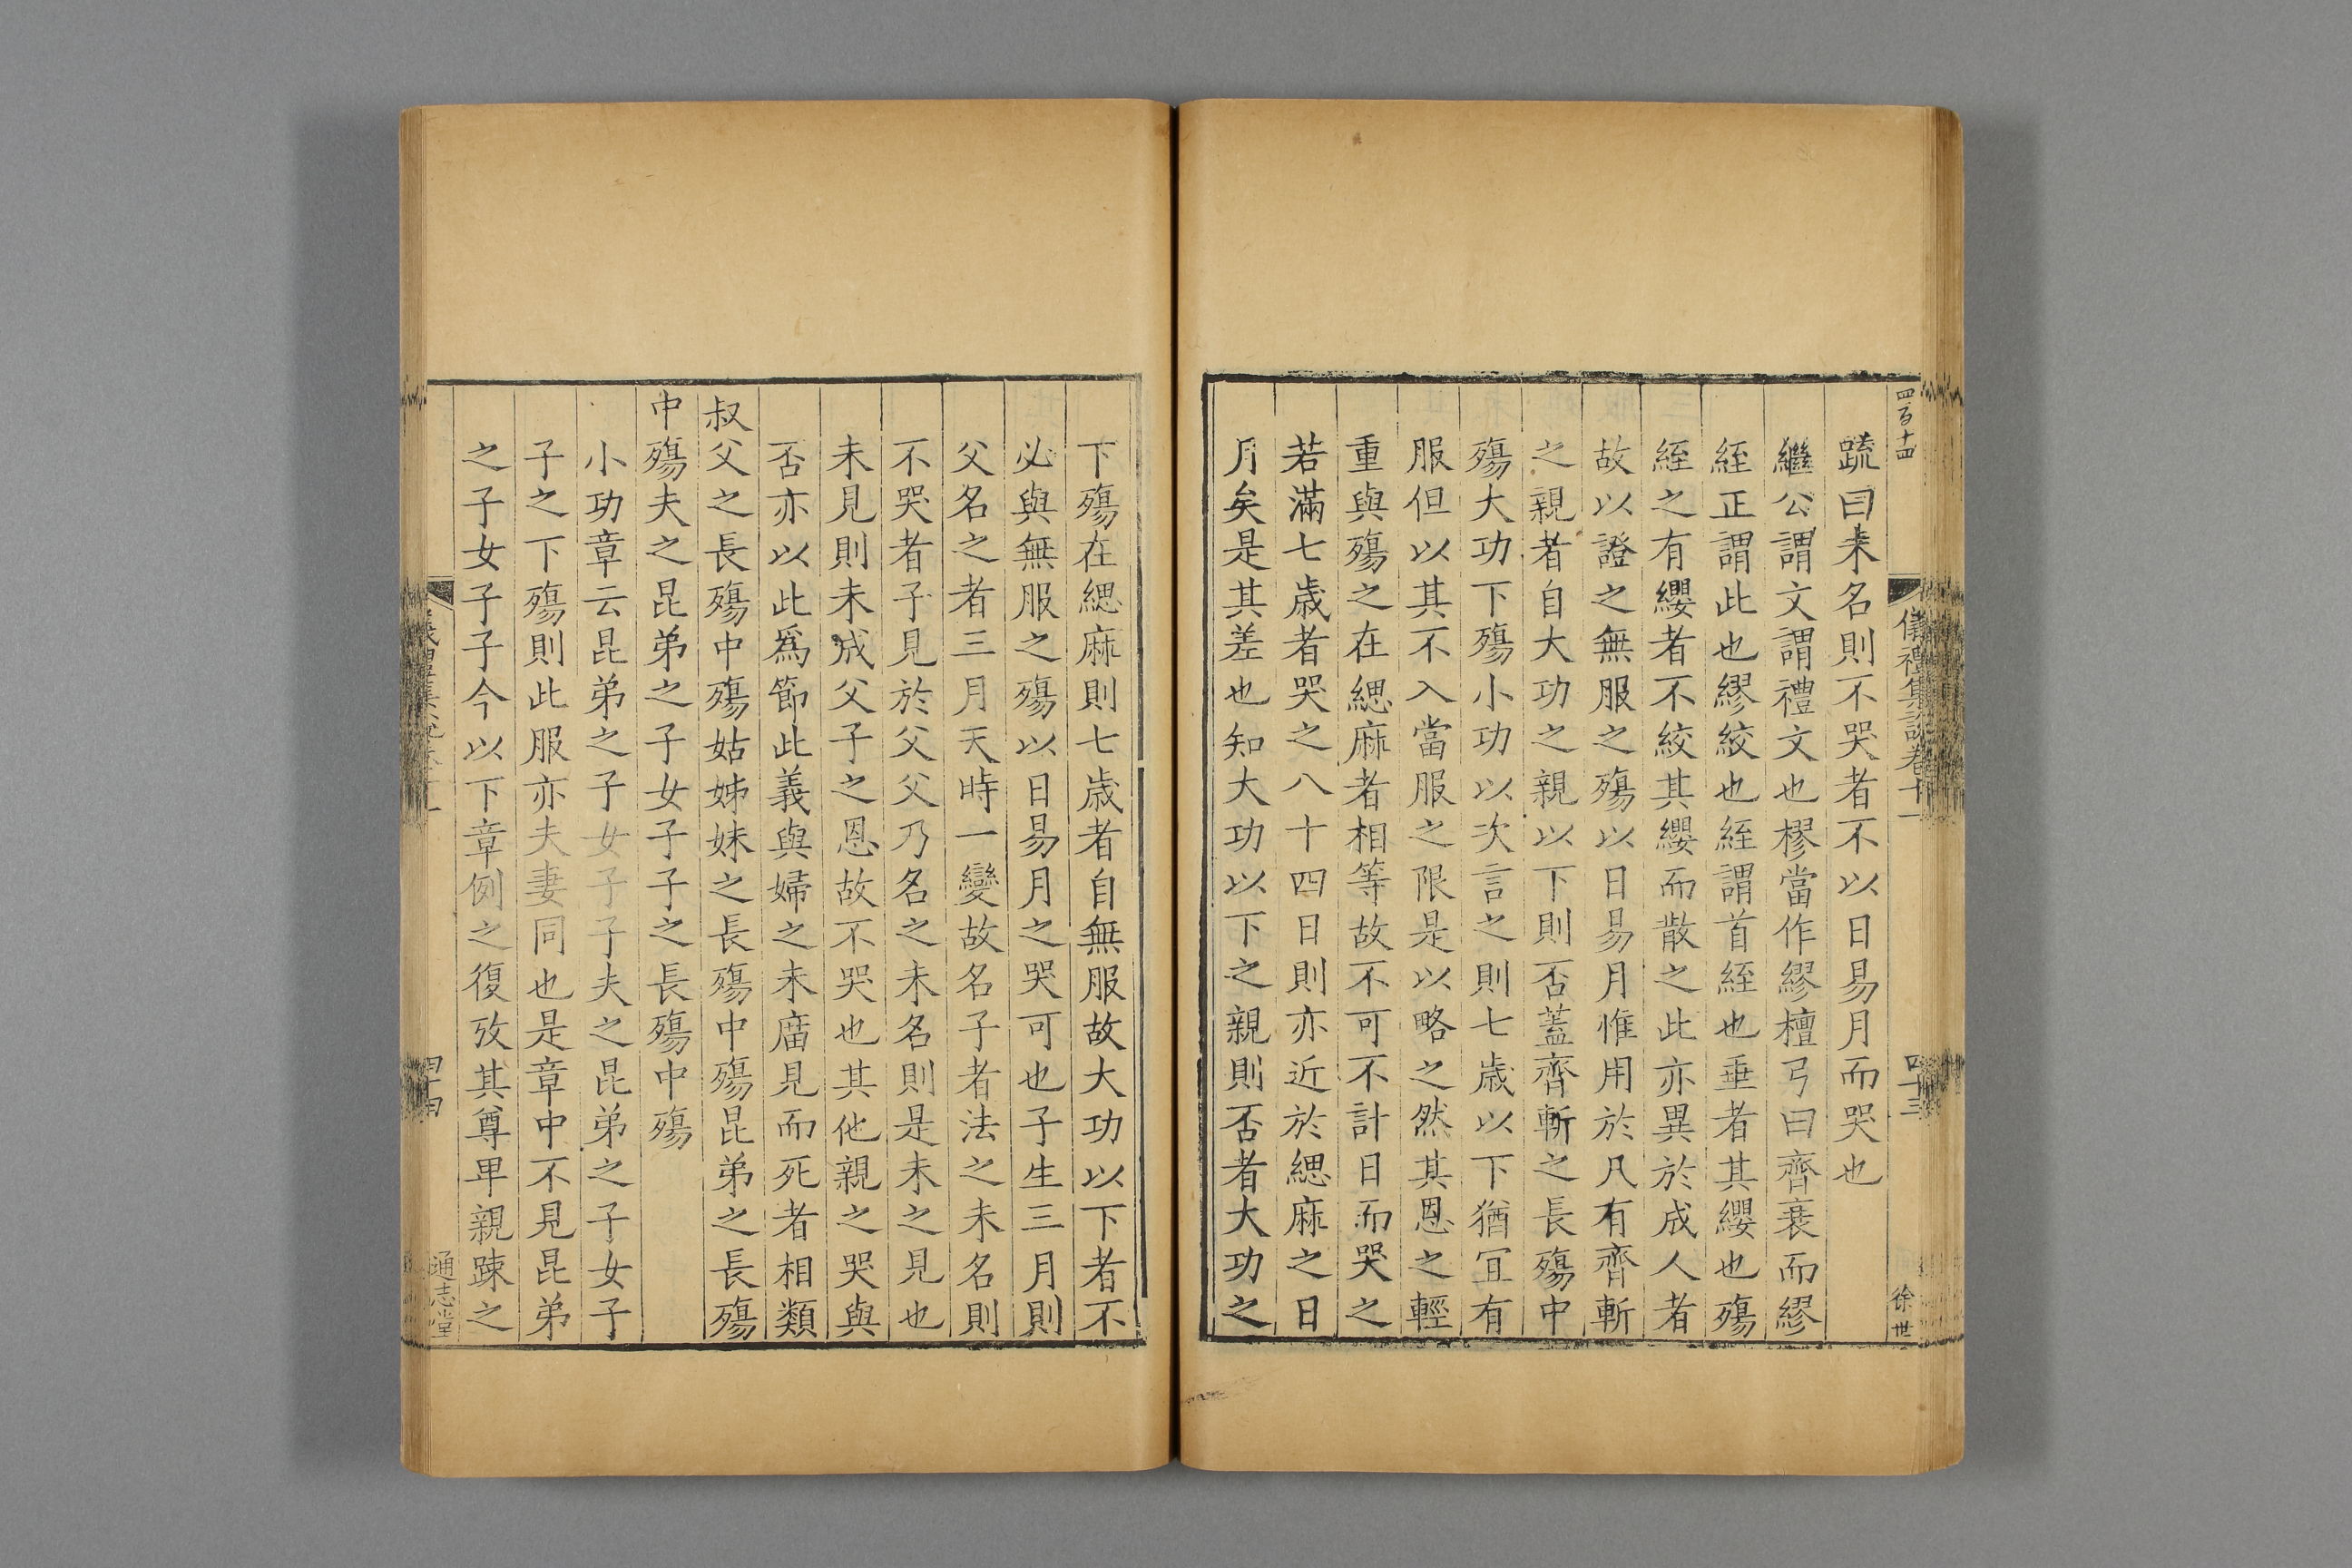 四百十四
儀禮集說卷十一
四十三
徐世
疏曰未名則不哭者不以日易月而哭也
繼公謂文謂禮文也樛當作繆檀弓曰齊衰而繆
絰正謂此也繆絞也絰謂首絰也垂者其纓也殤
絰之有纓者不絞其纓而散之此亦異於成人者
故以證之無服之殤以日易月惟用於凡有齊斬
之親者自大功之親以下則否蓋齊斬之長殤中
殤大功下殤小功以次言之則七歲以下猶冝有
服但以其不入當服之限是以略之然其恩之輕
重與殤之在緦麻者相等故不可不計日而哭之
若滿七歲者哭之八十四日則亦近於緦麻之日
月矣是其差也知大功以下之親則否者大功之
下殤在緦麻則七歲者自無服故大功以下者不
必與無服之殤以日易月之哭可也子生三月則
父名之者三月天時一變故名子者法之未名則
不哭者子見於父父乃名之未名則是未之見也
未見則未成父子之恩故不哭也其他親之哭與
否亦以此爲節此義與婦之未廟見而死者相類
叔父之長殤中殤姑姊妹之長殤中殤昆弟之長殤
中殤夫之昆弟之子女子子之長殤中殤
小功章云昆弟之子女子子夫之昆弟之子女子
子之下殤則此服亦夫妻同也是章中不見昆弟
之子女子子今以下章例之復攷其尊卑親踈之
四十四
通志堂